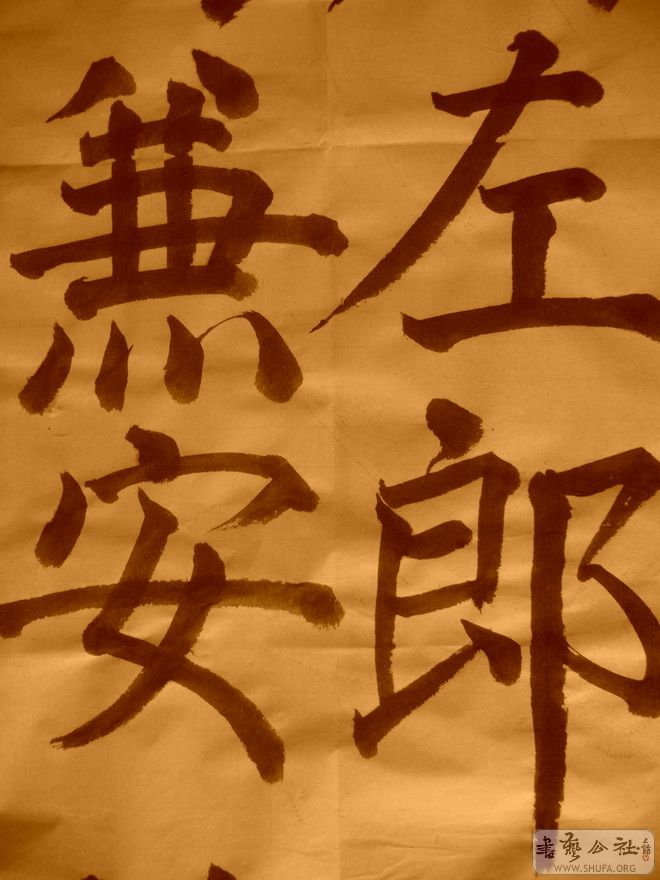 左郎
兼安
書藝公社
WWW.SHUFA.ORG